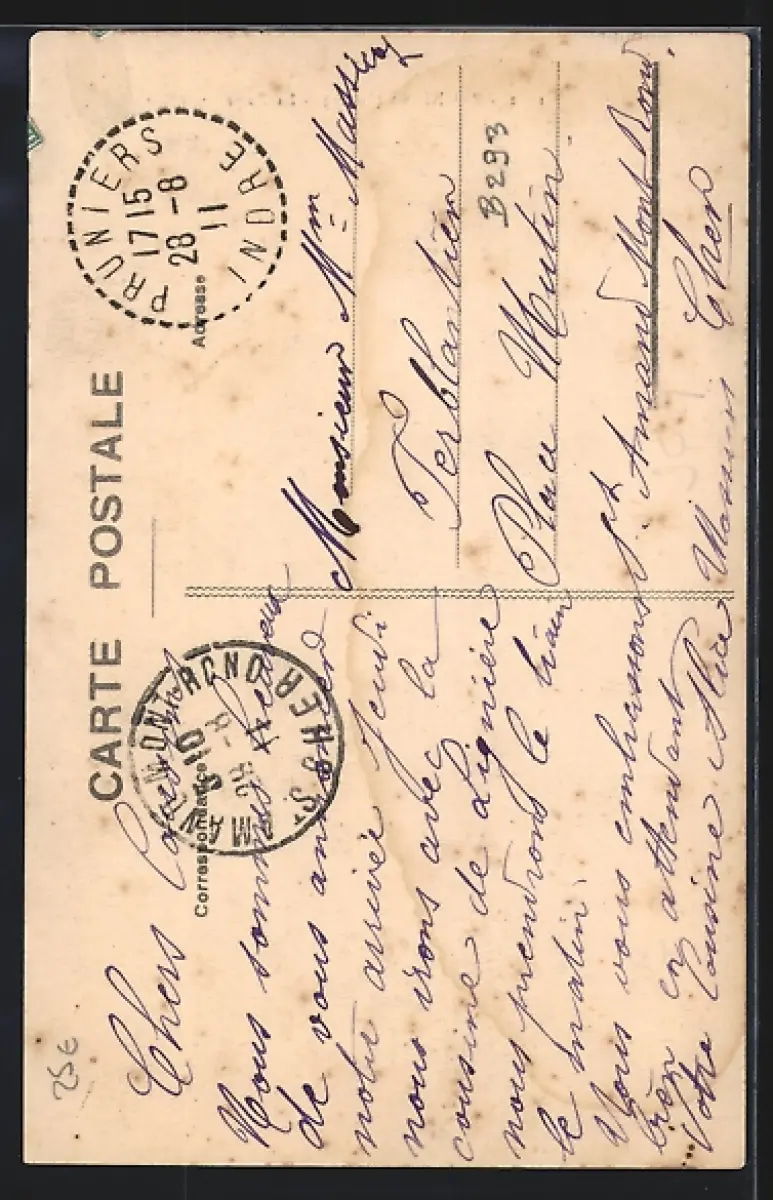 CARTE POSTALE
Correspondance
Adresse
PRUNIERS INDRE
17 15
28 -8
11
MONT-ROND
CHER
ST
5 10
-8
Chers Cousins
Nous sommes heureux
de vous annoncer
notre arrivée Jeudi
nous irons avec la
cousine de Lignière
nous prendrons le train
le matin.
Nous vous embrassons
bien en attendant
Votre Cousine Alice
Monsieur Mm
Ferblantier
B293
Place Mutin
St Amand Mont Rond.
Cher
25€